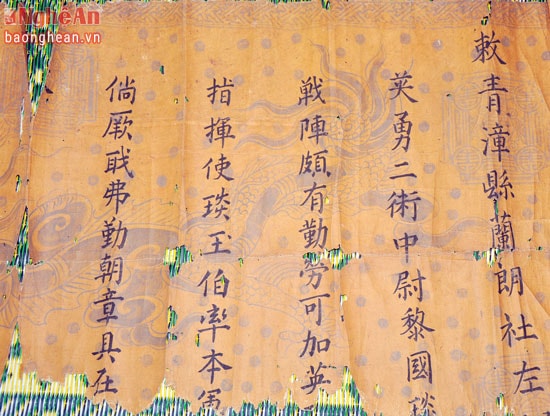 NgheAn
baonghean.vn
敕青漳縣蘭朗社左
英勇二衛中尉黎國琰
戦陣頗有勤勞可加英
指揮使琰玉伯率本寓
倘厥職弗勤朝章具在